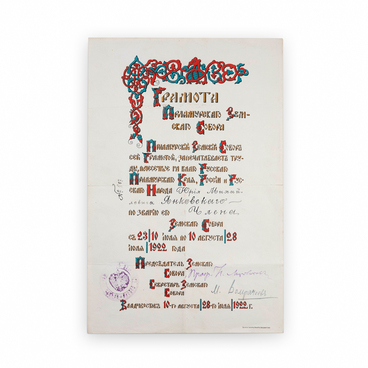 Грамота
Приамурскаго Зем-
скаго Собора
Приамурскій Земскій Собор
сей Грамотой, запечатлевает тру-
ды, понесенные на благо Русскаго
Приамурскаго Края, России и Рус-
скаго Народа Юрія Михай-
ловича Янковскаго
по званию его Члена
Земскаго Собора
с 23/10 июля по 10 августа/28
июля 1922 года
Председатель Земскаго
Собора Проф.
Секретарь Земскаго
Собора
Владивосток 10-го августа/28-го июля 1922 г.